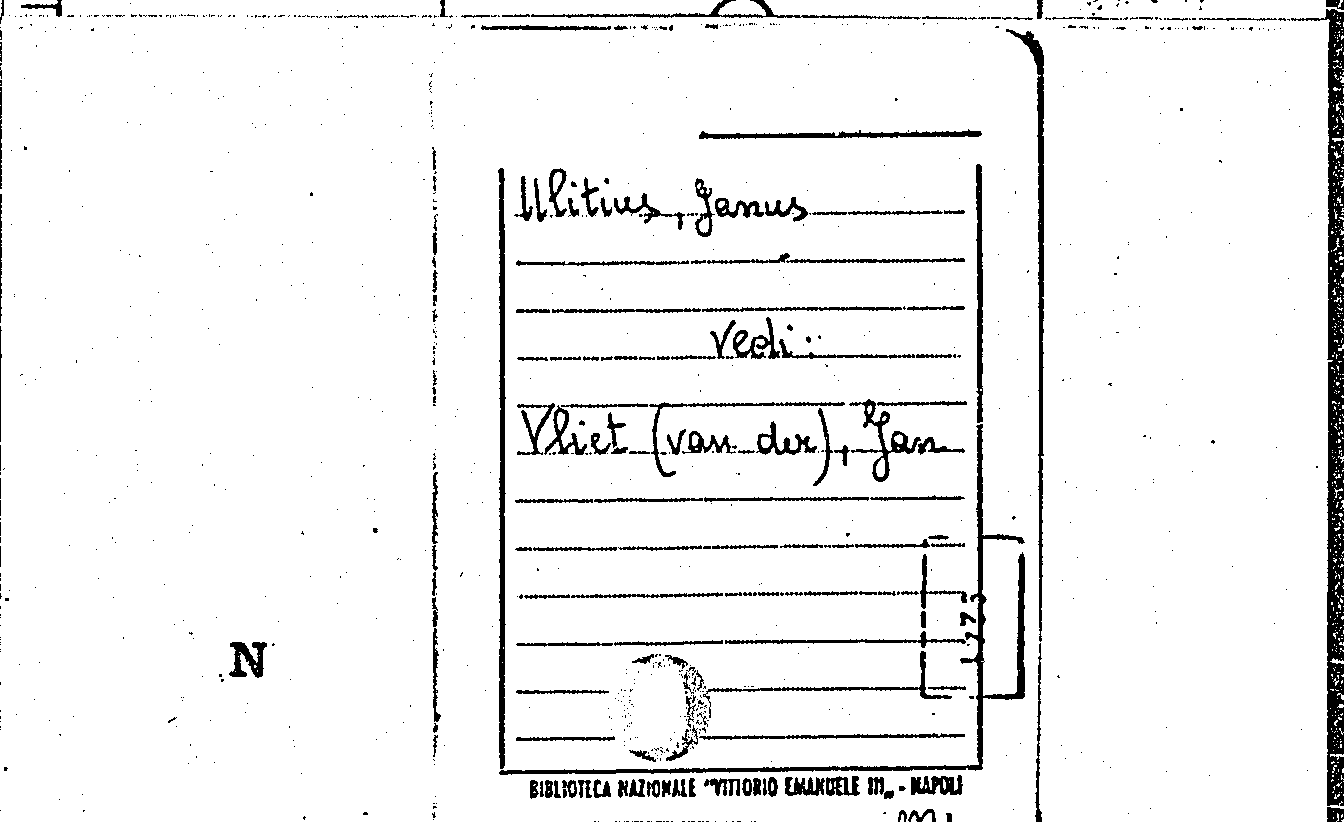 Ulitius, Janus
Vedi:
Vliet (van der), Jan
1775
N
BIBLIOTECA NAZIONALE "VITTORIO EMANUELE III„ - NAPOLI